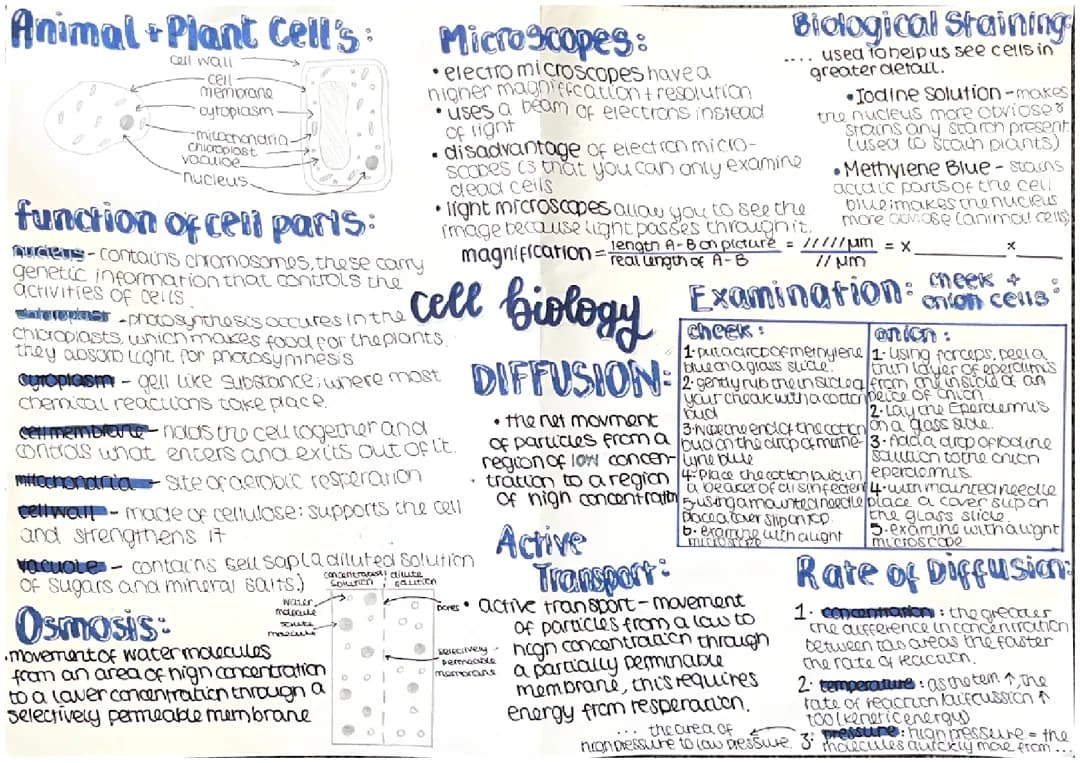 Animal + Plant Cell's:
cell wall
cell
membrane
cytoplasm
mitochondria
chloroplast
vacuole
nucleus
function of cell parts:
nucleus - contains chromosomes, these carry
genetic information that controls the
activities of cells.
chloroplast - photosynthesis occures in the
chloroplasts, which makes food for the plants,
they absorb light for photosynthesis
cytoplasm - gell like substance, where most
chemical reactions take place.
cell membrane - holds the cell together and
controls what enters and exits out of it.
mitochondria - site of aerobic resperation
cell wall - made of cellulose: supports the cell
and strengthens it
vacuole - contains cell sap (a diluted solution
of sugars and mineral salts.)
Osmosis:
• movement of water molecules
from an area of high concentration
to a lower concentration through a
selectively permeable membrane
concentrated solution
dilute solution
water
molecule
solute
molecule
pores
selectively
permeable
membrane
Microscopes:
• electro microscopes have a
higher magnification + resolution
• uses a beam of electrons instead
of light
• disadvantage of electron micro-
scopes is that you can only examine
dead cells
• light microscopes allow you to see the
image because light passes through it.
magnification = length A-B on picture / real length of A-B = /////μm / //μm = x ______ x ______
cell biology
DIFFUSION:
• the net movment
of particles from a
region of low concen-
tration to a region
of high concentration
Active
Transport:
• active transport - movement
of particles from a low to
high concentration through
a partially perminable
membrane, this requires
energy from resperation.
Biological Staining
.... used to help us see cells in
greater detail.
• Iodine Solution - makes
the nucleus more obviose &
stains any starch present
(used to stain plants)
• Methylene Blue - stains
acidic parts of the cell
blue: makes the nucleus
more obviose (animal cells)
Examination: cheek +
onion cells:
cheek:
1- put a drop of methylene
blue on a glass slide.
2- gently rub the inside of
your cheak with a cotton
bud
3- wipe the end of the cotton
bud on the drop of
blue
4- Place the cotton bud in
a beaker of disinfectant
5- using a mounted needle
place a cover slip on top.
6- examine with a light
microscope
onion:
1- using forceps, peel a
thin layer of eperdimis
from the inside of an
peice of onion.
2- Lay the Eperdemis
on a glass slide.
3- Add a drop of Iodine
solution to the onion
eperdemis.
4- with mounted needle
place a cover slip on
the glass slide.
5- examine with a light
microscope
Rate of Diffusion:
1- concentration: the greater
the difference in concentration
between two areas the faster
the rate of reaction.
2- temperature: as the tem ↑, the
rate of reaction (diffussion ↑
too (keneric energy)
3- pressure: high pressure = the
molecules quickly move from ...
... the area of
high pressure to low pressure.